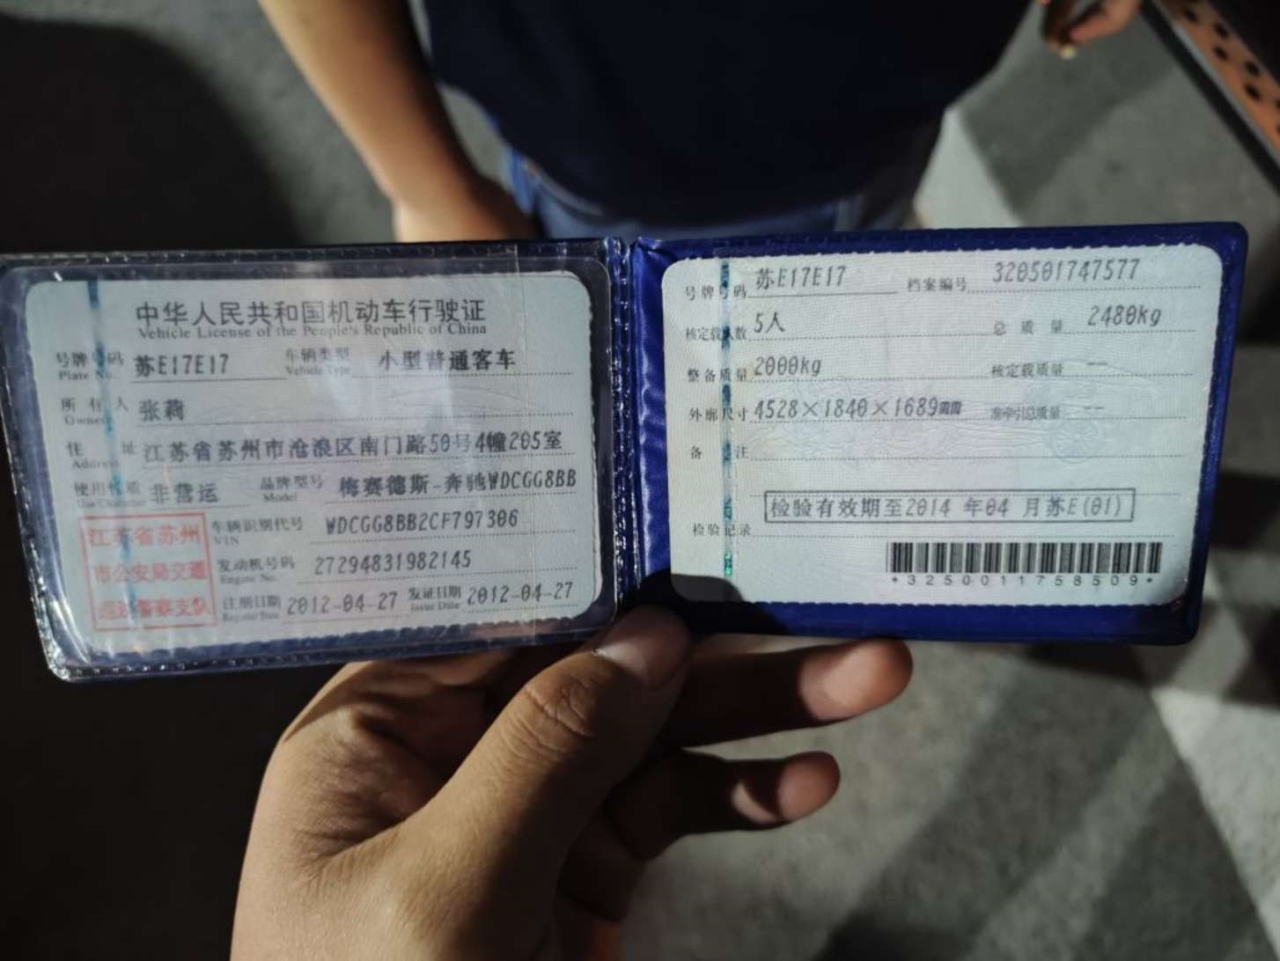 中华人民共和国机动车行驶证
Vehicle License of the People's Republic of China
号牌号码 苏E17E17 车辆类型 小型普通客车
Plate No. Vehicle Type
所有人 张莉
Owner
住址 江苏省苏州市沧浪区南门路50号4幢205室
Address
使用性质 非营运 品牌型号 梅赛德斯-奔驰WDCGG8BB
Use Character Model
江苏省苏州
市公安局交通
巡逻警察支队
车辆识别代号 WDCGG8BB2CF797306
VIN
发动机号码 27294831982145
Engine No.
注册日期 2012-04-27 发证日期 2012-04-27
Register Date Issue Date
号牌号码 苏E17E17 档案编号 320501747577
核定载人数 5人 总质量 2480kg
整备质量 2000kg 核定载质量 --
外廓尺寸 4528×1840×1689mm 准牵引总质量 --
备注
检验有效期至2014 年04 月苏E(01)
检验记录
*3250011758509*